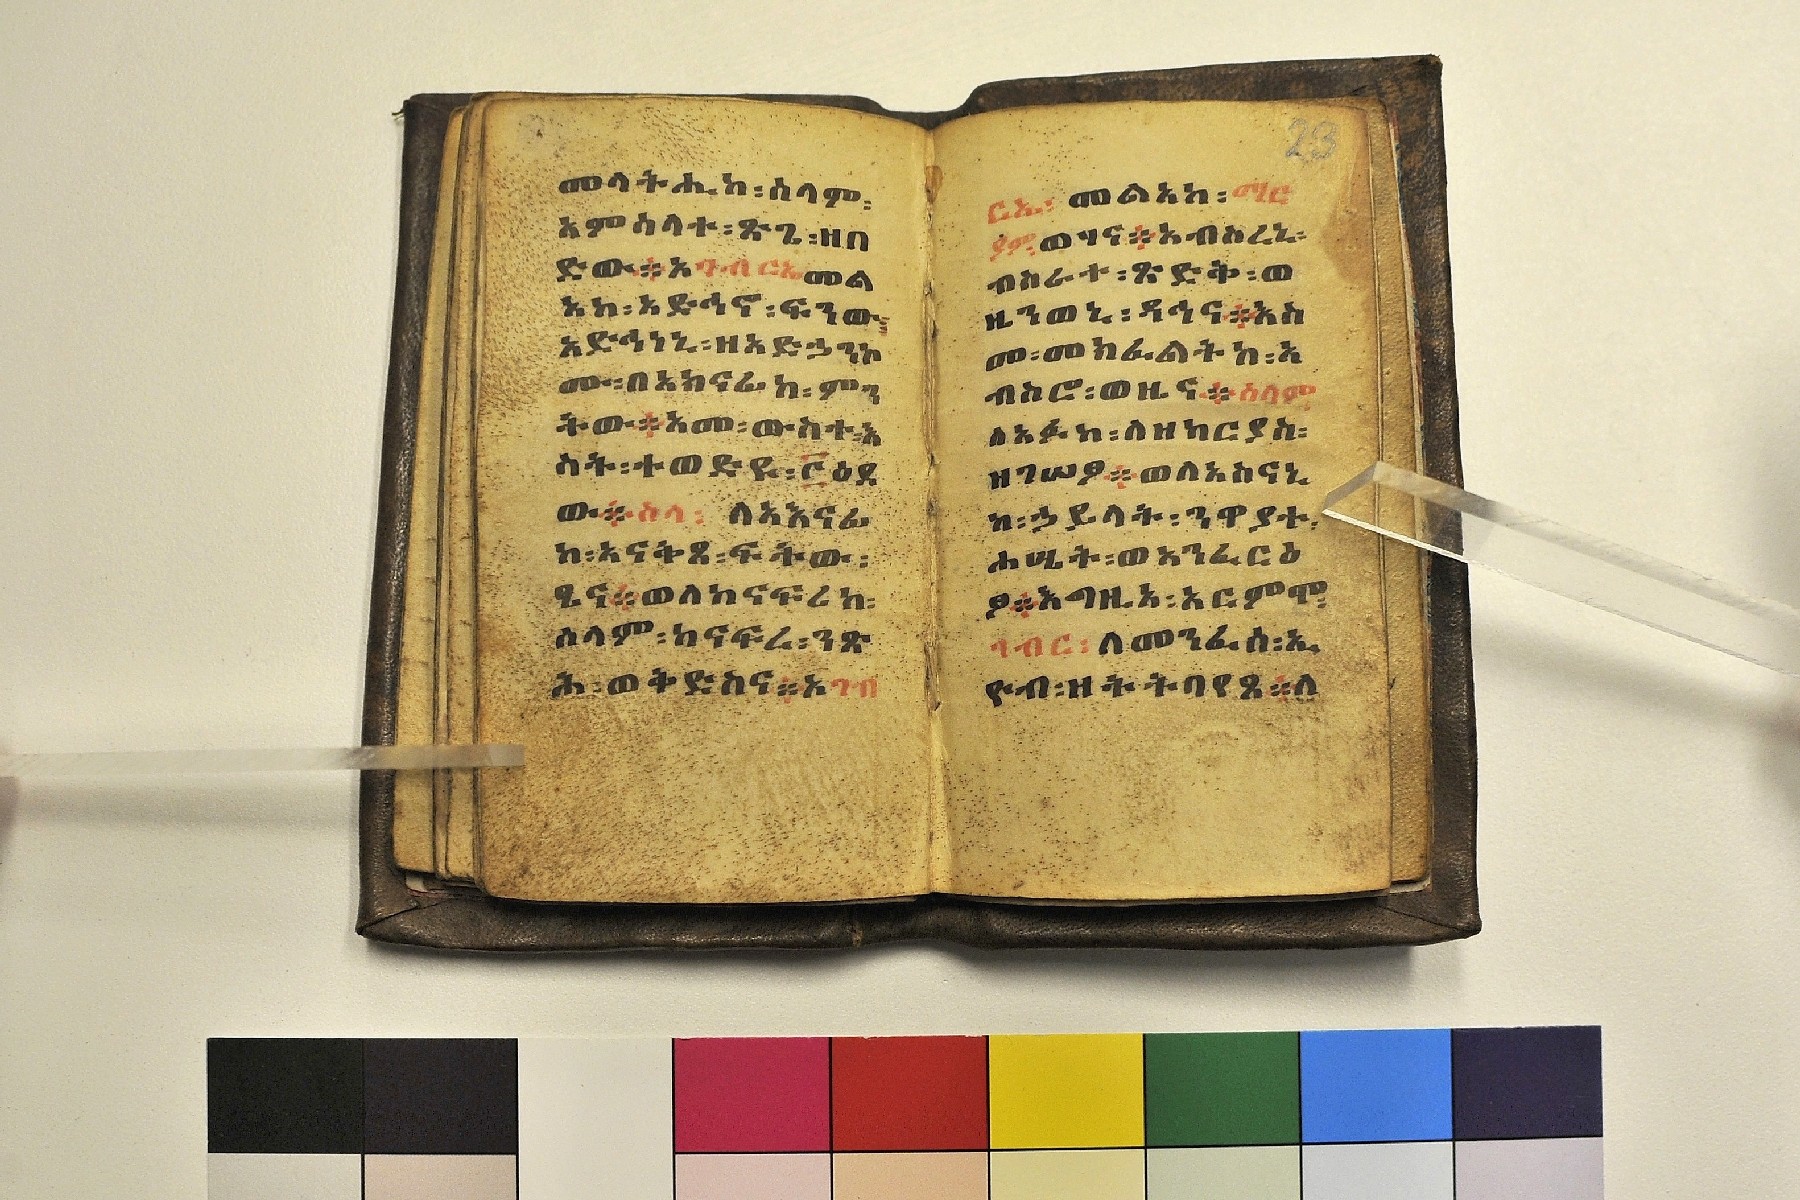 መላትሒከ፡ሰላም፡
አምሳላተ፡ጽጌ፡ዘበ
ድው።አገብርኤመል
አክ፡አድኅኖ፡ፍንው፡
አድኅነኒ፡ዘአድኃንኮ
ሙ፡በአክናፊከ፡ምን
ትው።አመ፡ውስተ፡እ
ስት፡ተወድዩ፡፫ዕደ
ው።ሰላ፡ ለአእናፊ
ከ፡አናቅጸ፡ፍትው፡
ፄና።ወለከናፍሪከ፡
ሰላም፡ከናፍረ፡ንጽ
ሕ፡ወቅድስና።አገብ
23
ርኤ፡ መልአከ፡ማር
ያም፡ወሃና።አብስረኒ፡
ብስራተ፡ጽድቅ፡ወ
ዜንወኒ፡ዳኅና።እስ
መ፡መክፈልትከ፡አ
ብስሮ፡ወዜና።ሰላም
ለአፉከ፡ለዘካርያስ፡
ዘገሠፆ።ወለአስናኒ
ከ፡ኃይላት፡ንዋያተ፡
ሐሢት፡ወአንፈርዕ
ፆ።እግዚአ፡አርምሞ፡
ገብር፡ ለመንፈሰ፡ኢ
ዮብ፡ዝትትባየጸ።ለ